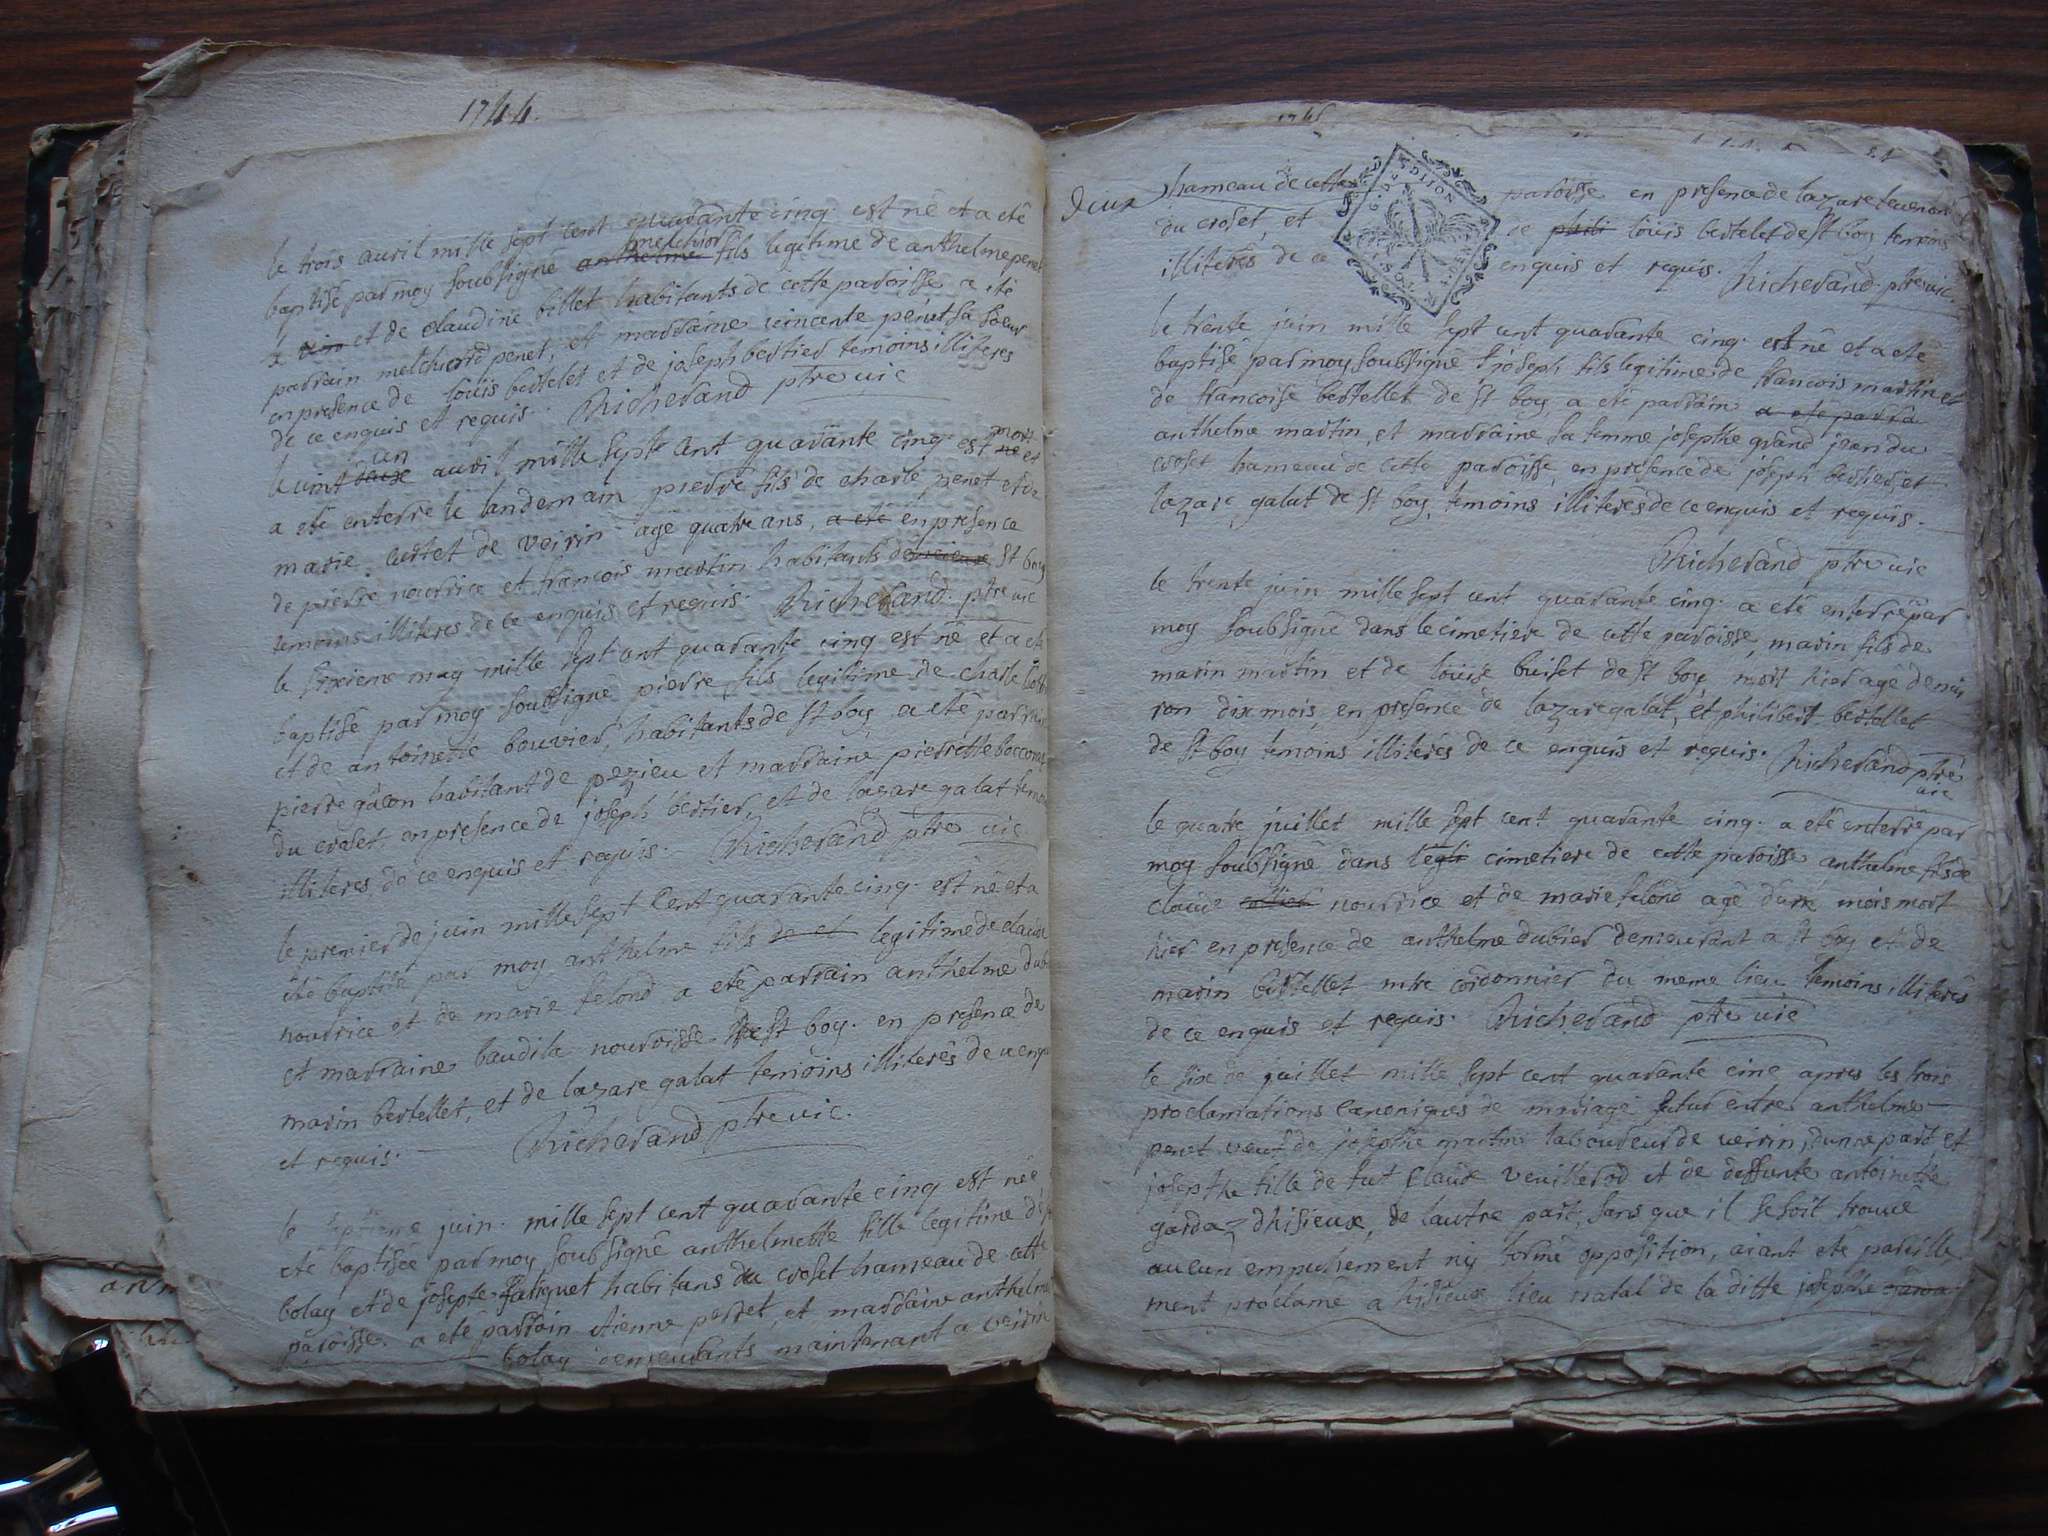 1744.
le trois avril mille sept cent quarante cinq est né et a eté
baptisé par moy soubsigné anthelme melchior fils legitime de anthelme penet
et de claudine billet habitants de cette paroisse a eté
parrain melchior penet, et marraine vincente penet sa soeur
en presence de loüis bertelet et de joseph bertier temoins illiteres
de ce enquis et requis. Richerand ptre vic
le vint un avril mille sept cent quarante cinq est mort et
a eté enterré le landemain pierre fils de charle penet et de
marie curtet de veirin agé quatre ans, a eté en presence
de pierre nourrice et francois martin habitants de St boy
temoins illiteres de ce enquis et requis. Richerand ptre vic
le sixieme may mille sept cent quarante cinq est né et a eté
baptisé par moy soubsigné pierre fils legitime de charle
et de antoinette bouvier, habitants de St boy, a eté parrain
pierre gacon habitant de pezieu et marraine pierrette boccon
du croset, en presence de joseph bertier, et de lazare galat temoins
illiteres de ce enquis et requis. Richerand ptre vic
le premier de juin mille sept cent quarante cinq. est né et a
eté baptisé par moy anthelme fils de et legitime de claude
nourrice et de marie felond a eté parrain anthelme dub
et marraine baudila nourrisse de St boy. en presence de
marin bertellet, et de lazare galat temoins illiterés de ce enquis
et requis. Richerand ptre vic.
le septieme juin. mille sept cent quarante cinq est née
eté baptisée par moy soubsigné anthelmette fille legitime de
bolay et de josepte fatiguet habitans du croset hameau de cette
paroisse. a eté parrain etienne perret, et marraine anthelme
bolay demeurants maintenant a veirin
1745
Deux
hameau de cette paroisse en presence de lazare
du croset, et de phili loüis bertelet de St boy temoins
illiterés de ce enquis et requis. Richerand ptre vic.
G. DE DIJON
le trente juin mille sept cent quarante cinq. est né et a eté
baptisé par moy soubsigné joseph fils legitime de francois martin et
de francoise bertellet de St boy, a eté parrain a eté parra
anthelme martin, et marraine sa femme josephe grand jean du
croset hameau de cette paroisse, en presence de joseph bertier, et
lazare galat de St boy, temoins illiteres de ce enquis et requis.
Richerand ptre vic
le trente juin mille sept cent quarante cinq. a eté enterré par
moy soubsigné dans le cimetiere de cette paroisse, marin fils de
marin martin et de loüise buiset de St boy mort hier agé d'envi
ron dix mois, en presence de lazare galat, et philibert bertellet
de St boy temoins illiterés de ce enquis et requis. Richerand ptre
vic
le quatre juillet mille sept cent quarante cinq. a eté enterré par
moy soubsigné dans l'egli cimetiere de cette paroisse anthelme fils de
claude nourrice et de marie felond agé d'un mois mort
hier en presence de anthelme dubier demeurant a St boy et de
marin bertellet mtre cordonnier du meme lieu temoins illiterés
de ce enquis et requis. Richerand ptre vic
le six de juillet mille sept cent quarante cinc apres les trois
proclamations canoniques de mariage futur entre anthelme
penet veuf de josephe martin laboureur de veirin, d'une part, et
josepthe fille de fut claude veuillerod et de deffunte antoinette
gardaz d'hisieux, de l'autre part, sans que il se soit trouvé
aucun empechement ny formé opposition, aiant eté pareille
ment proclamé a hisieux lieu natal de la ditte josephe